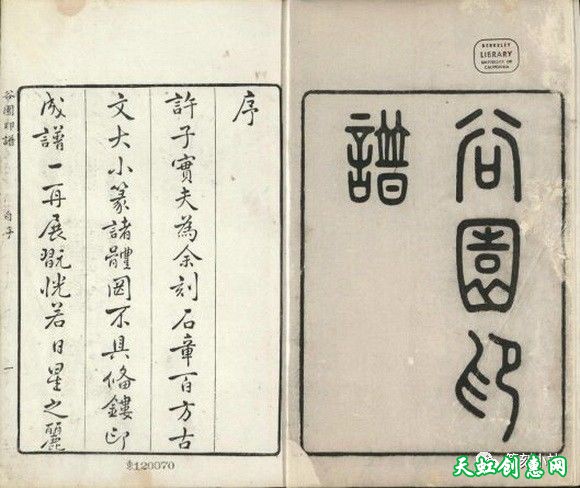 谷園印
譜
BERKELEY
LIBRARY
UNIVERSITY OF
CALIFORNIA
序
許子實夫為余刻石章百方古
文大小篆諸體罔不具備鏤印
成譜一再展翫恍若日星之麗
谷園印譜
自序
一
120070
天虹创惠网